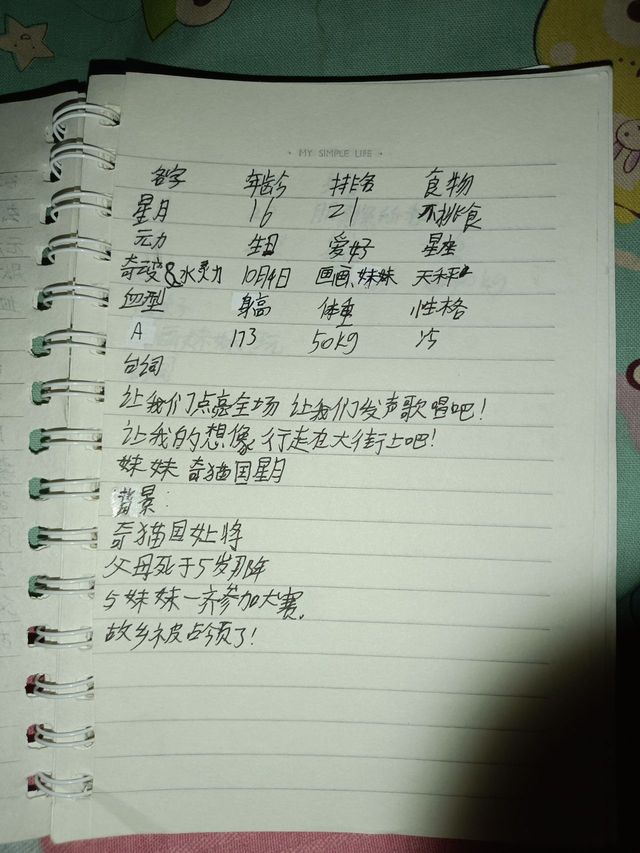 MY SIMPLE LIFE
名字 年龄 排名 食物
星月 16 21 不挑食
元力 生日 爱好 星座
奇变&水灵力 10月4日 画画、妹妹 天秤
血型 身高 体重 性格
A 173 50kg 冷
台词
让我们点亮全场 让我们发声歌唱吧!
让我的想像 行走在大街上吧!
妹妹 奇猫国星月
背景:
奇猫国女将
父母死于5岁那年
与妹妹一齐参加大赛.
故乡被占领了!